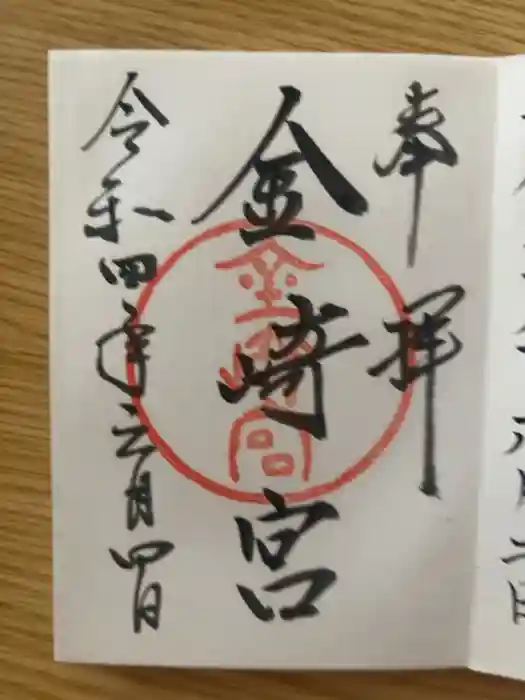 奉拝
金崎宮
金崎宮
令和四年 月四日